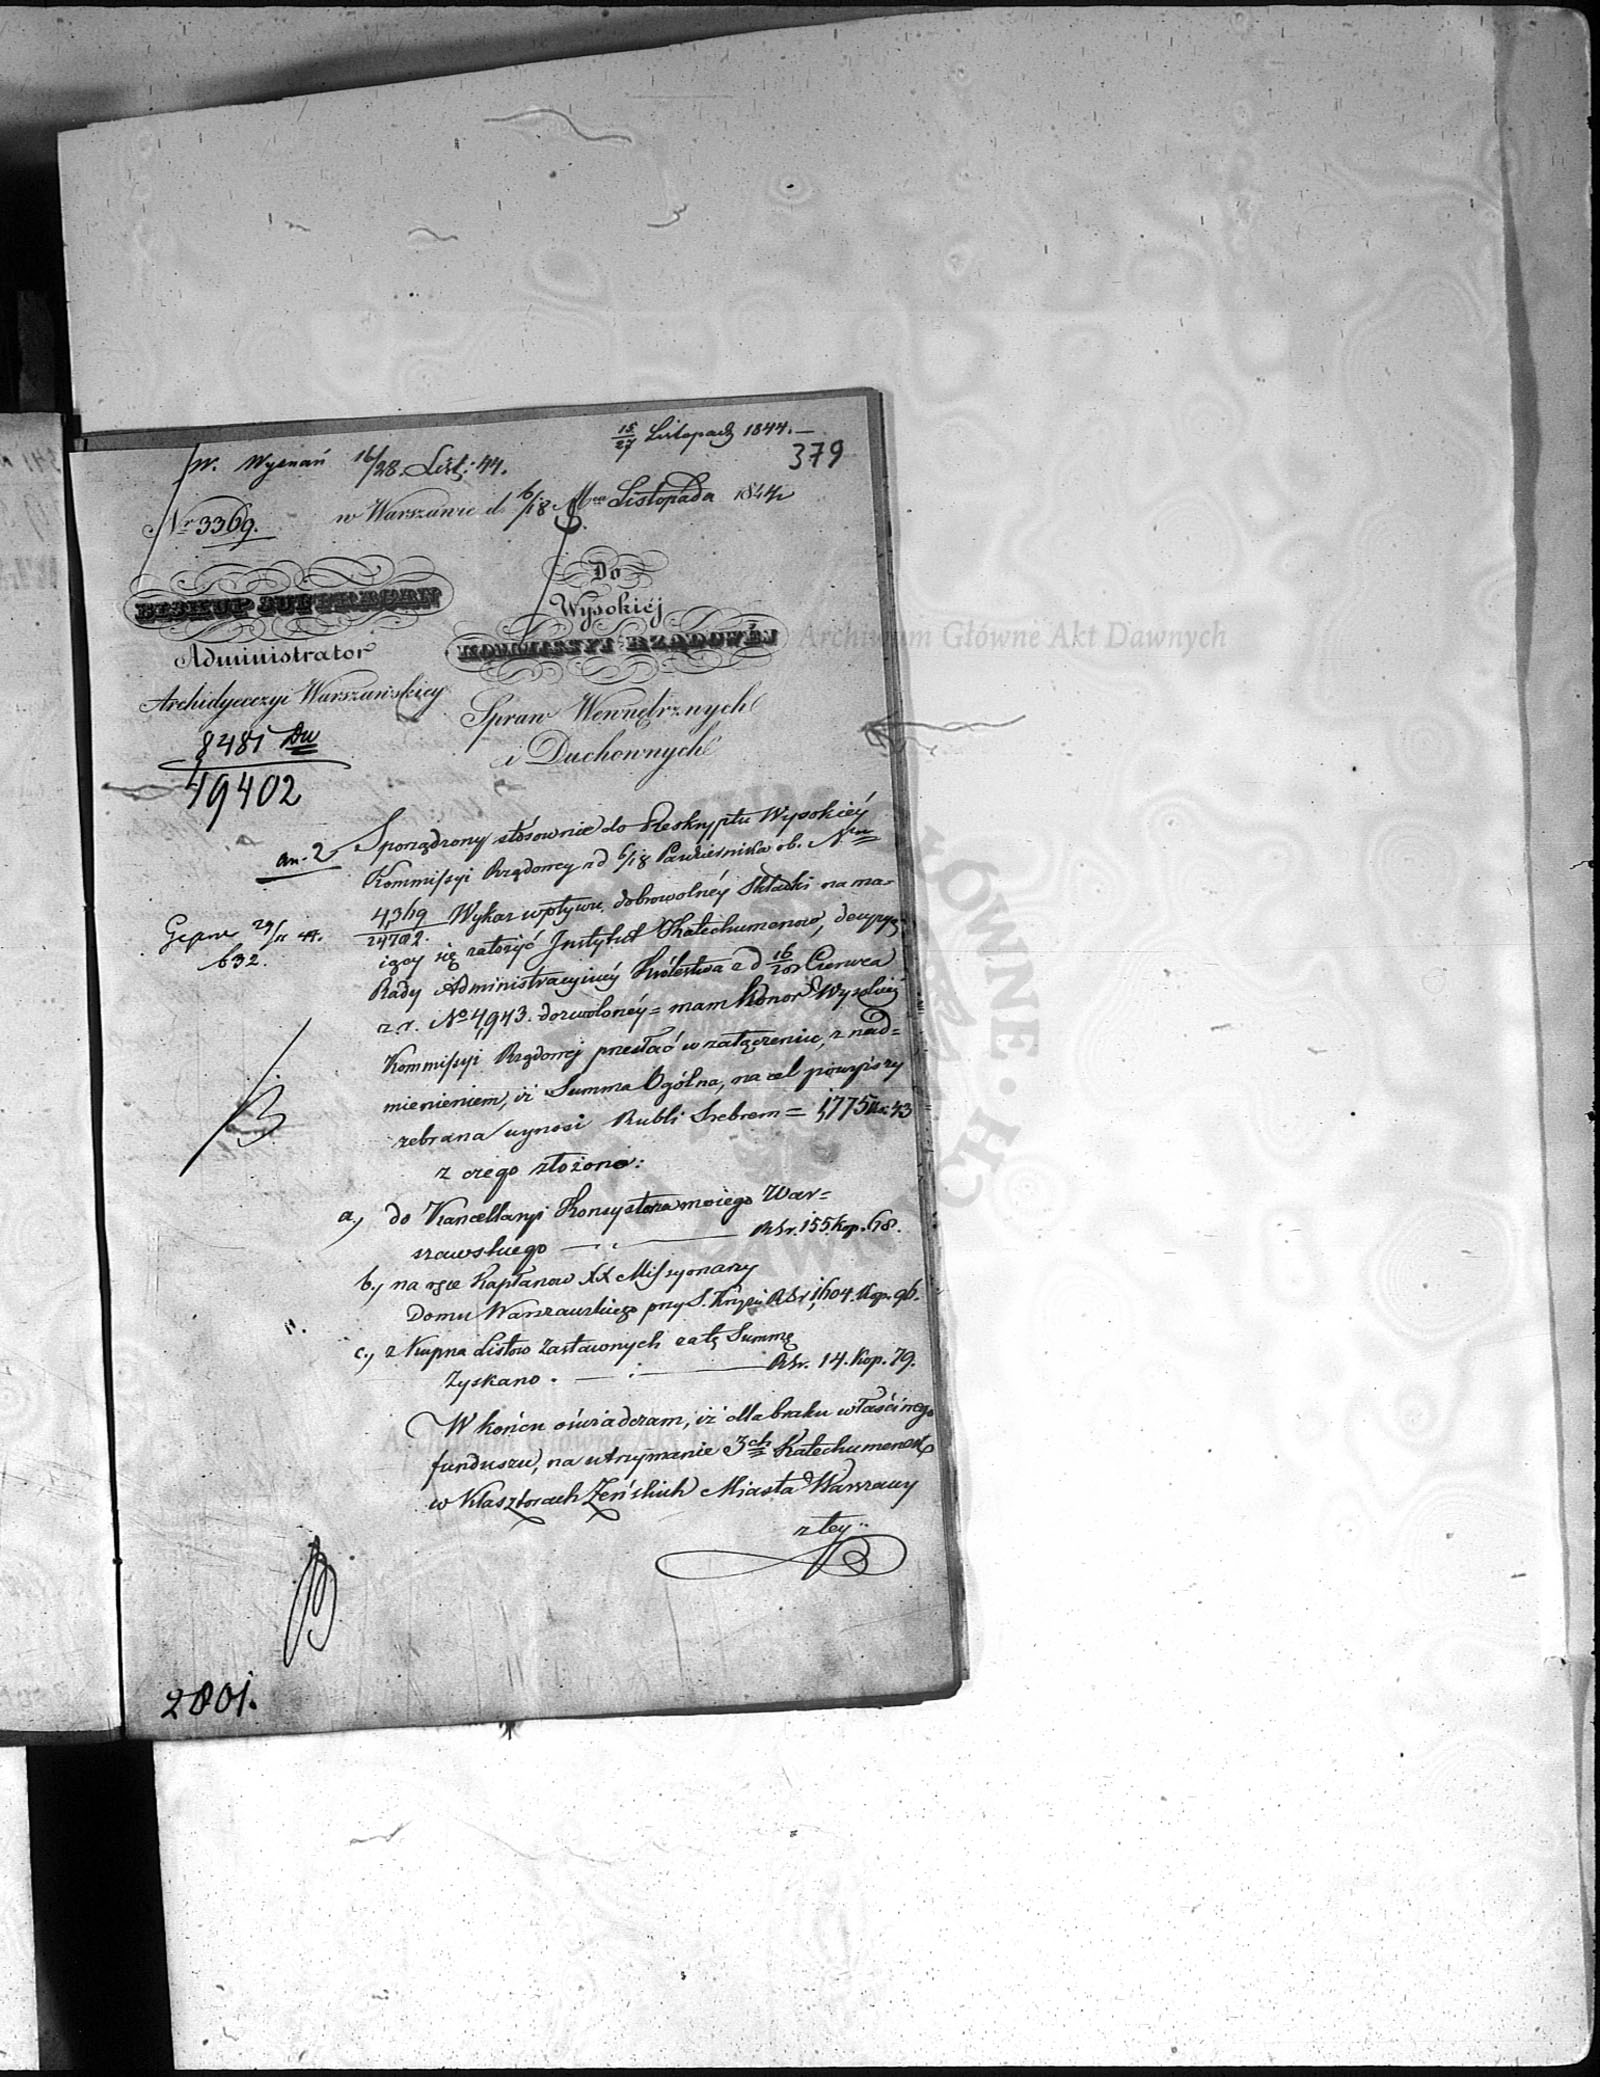 15/27 Listopad 1844.—
379
W. Wyznań 16/28 List: 44.
w Warszawie d. 6/18 Mca Listopada 1844 r
Nr 3369.
BISKUP SUFFRAGAN
Administrator
Archidyecezyi Warszawskiey
8481 Dw
49402
Do
Wysokiéj
KOMMISSYI RZĄDOWÉJ
Spraw Wewnętrznych
i Duchownych
an. 2
Sporządzony stósownie do Reskryptu Wysokiéy
Kommissyi Rządowey z d 6/18 Października ob. Nru
4369/24702. Wykaz wpływu dobrowolnéy Składki na ma-
iący się założyć Instytut Katechumenów, decyzyą
Rady Administracyjnéy Królestwa z d 16/28 Czerwca
z. r. No 4943. dozwolonéy = mam honor Wysokiéj
Kommissyi Rządowéj przesłać w załączeniu, z nad-
mienieniem, iż Summa Ogólna, na cel powyższy
zebrana wynosi Rubli Srebrem = 1,775 k. 43
z czego złożono:
29/11 44.
632.
a, do Kancellaryi Konsystorza moiego War=
szawskiego — RSr. 155 kop. 68.
b, na ręce Kapłanow XX Missyonarzy
Domu Warszawskiego przy S. Krzyżu RSr 1,604. Kop. 96.
c, z Kupna Listow Zastawnych całą Summę
Zyskano. — RSr. 14. Kop. 79.
W końcu oświadczam, iż dla braku właściwego
funduszu, na utrzymanie 3ch Katechumenek
w Klasztorach Zeńskich Miasta Warszawy
z tey
2801.
Archiwum Główne Akt Dawnych